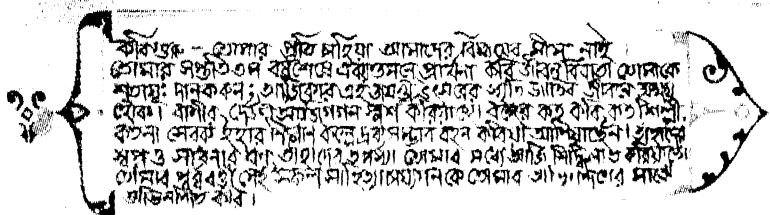 কবিগুরু – তোমার প্রতি চাহিয়া আমাদের বিস্ময়ের সীমা নাই।
তোমার সপ্ততিতম বর্ষশেষে একান্তমনে প্রার্থনা করি জীবন বিধাতা তোমাকে
শতায়ুঃ দান করুন; আজিকার এই জয়ন্তী উৎসবের স্মৃতি জাতির জীবনে অক্ষয়
হোক। বাণীর দেউল আজি গগন স্পর্শ করিয়াছে। বঙ্গের কত কবি, কত শিল্পী,
কতনা সেবক ইহার নির্ম্মাণ কল্পে দ্রব্য সম্ভার বহন করিয়া আনিয়াছেন। তাঁহাদের
স্বপ্ন ও সাধনার ধন তাঁহাদের তপস্যা তোমার মধ্যে আজি সিদ্ধিলাভ করিয়াছে।
তোমার পূর্ব্ববর্ত্তী সেই সকল সাহিত্যাচার্য্যগণকে তোমার অভিনন্দনের মাঝে
অভিনন্দিত করি।